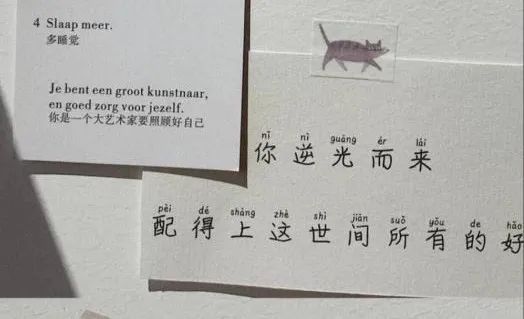 4 Slaap meer.
多睡觉
Je bent een groot kunstnaar,
en goed zorg voor jezelf.
你是一个大艺术家要照顾好自己
nǐ nì guāng ér lái
你逆光而来
pèi dé shàng zhè shì jiān suǒ yǒu de hǎo
配得上这世间所有的好